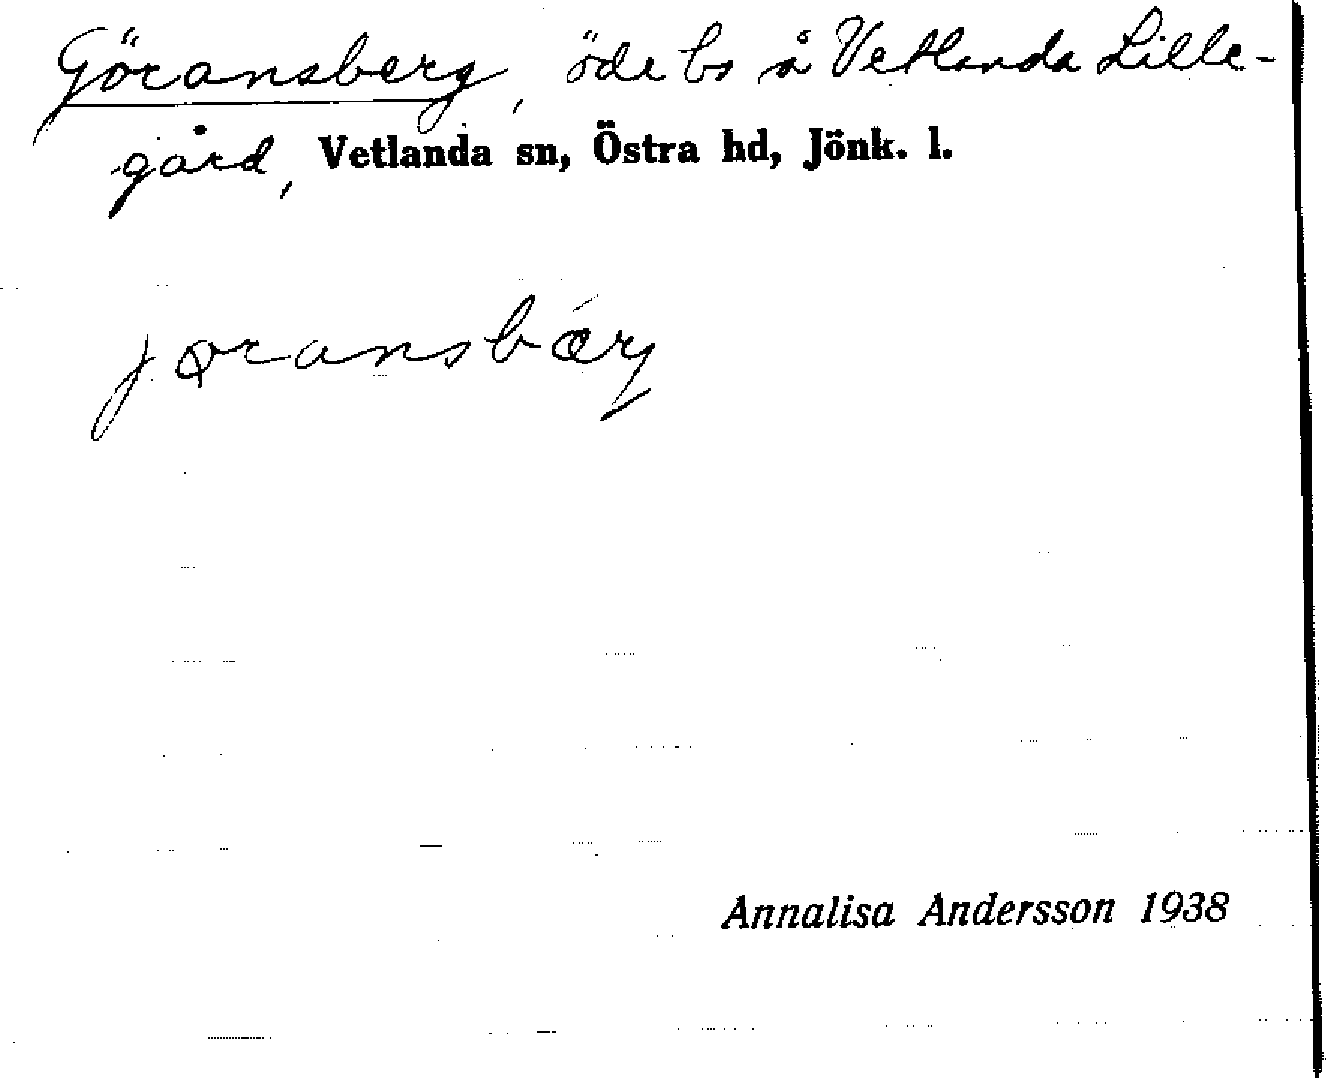 Göransberg, öde bs å Vetlanda Lille-
gård, Vetlanda sn, Östra hd, Jönk. l.
jøransbǽrj
Annalisa Andersson 1938